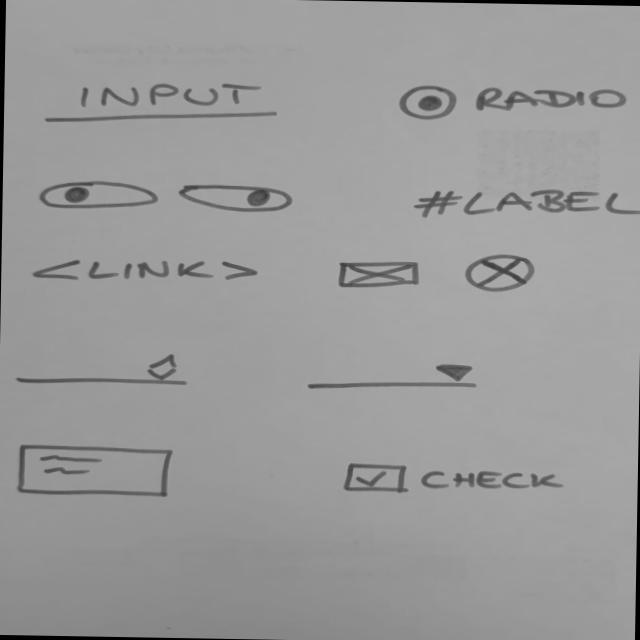 INPUT
RADIO
#LABEL
<LINK>
CHECK